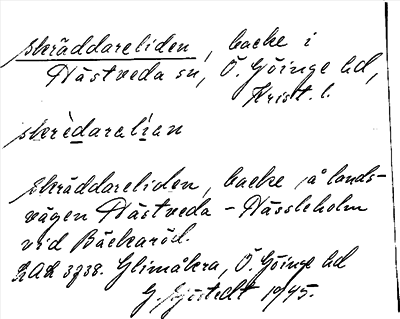 Skräddareliden, backe i
Hästveda sn, Ö. Göinge hd,
Krist. l.
skrèdaralìan
Skräddareliden, backe å lands-
vägen Hästveda - Hässleholm
vid Bäckaröd.
Glimåkra, Ö. Göinge hd
G. Sjöstedt 1945.